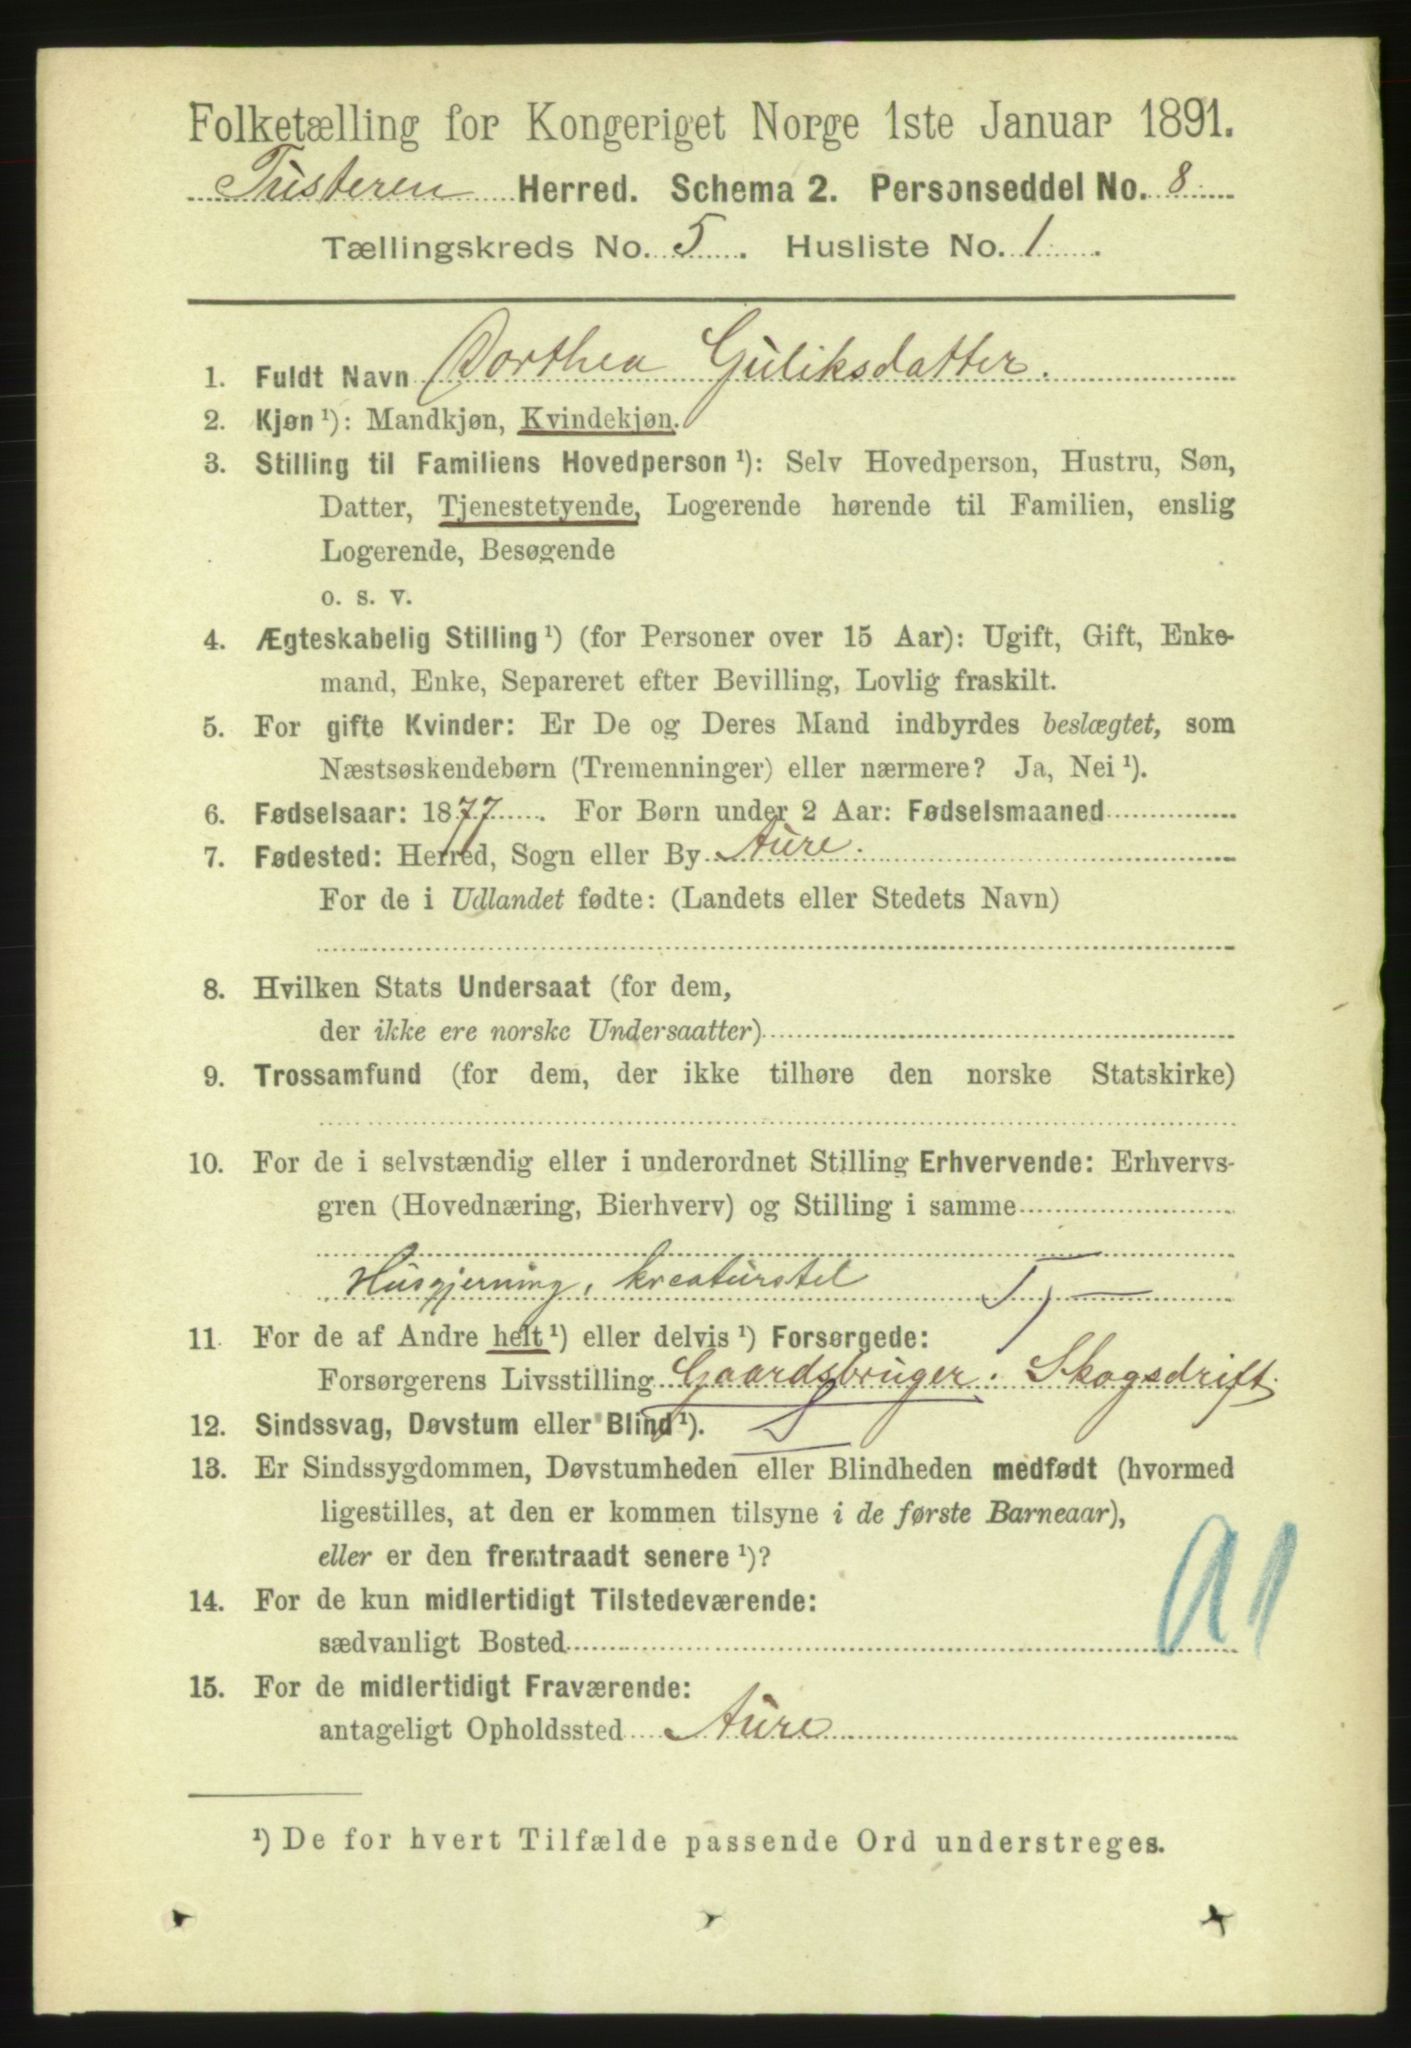 Folketælling for Kongeriget Norge 1ste Januar 1891.
Tusteren Herred. Schema 2. Personseddel No. 8
Tællingskreds No. 5. Husliste No. 1.
1. Fuldt Navn Dorthea Guliksdatter.
2. Kjøn ¹): Mandkjøn, Kvindekjøn.
3. Stilling til Familiens Hovedperson ¹): Selv Hovedperson, Hustru, Søn,
Datter, Tjenestetyende, Logerende hørende til Familien, enslig
Logerende, Besøgende
o. s. v.
4. Ægteskabelig Stilling ¹) (for Personer over 15 Aar): Ugift, Gift, Enke-
mand, Enke, Separeret efter Bevilling, Lovlig fraskilt.
5. For gifte Kvinder: Er De og Deres Mand indbyrdes beslægtet, som
Næstsøskendebørn (Tremenninger) eller nærmere? Ja, Nei ¹).
6. Fødselsaar: 1877. For Børn under 2 Aar: Fødselsmaaned
7. Fødested: Herred, Sogn eller By Aure.
For de i Udlandet fødte: (Landets eller Stedets Navn)
8. Hvilken Stats Undersaat (for dem,
der ikke ere norske Undersaatter)
9. Trossamfund (for dem, der ikke tilhøre den norske Statskirke)
10. For de i selvstændig eller i underordnet Stilling Erhvervende: Erhvervs-
gren (Hovednæring, Bierhverv) og Stilling i samme
Husgjerning, kreaturstel T
11. For de af Andre helt ¹) eller delvis ¹) Forsørgede:
Forsørgerens Livsstilling Gaardsbruger. Skogsdrift.
12. Sindssvag, Døvstum eller Blind ¹). S
13. Er Sindssygdommen, Døvstumheden eller Blindheden medfødt (hvormed
ligestilles, at den er kommen tilsyne i de første Barneaar),
eller er den fremtraadt senere ¹)?
14. For de kun midlertidigt Tilstedeværende:
sædvanligt Bosted
15. For de midlertidigt Fraværende:
antageligt Opholdssted Aure
¹) De for hvert Tilfælde passende Ord understreges.